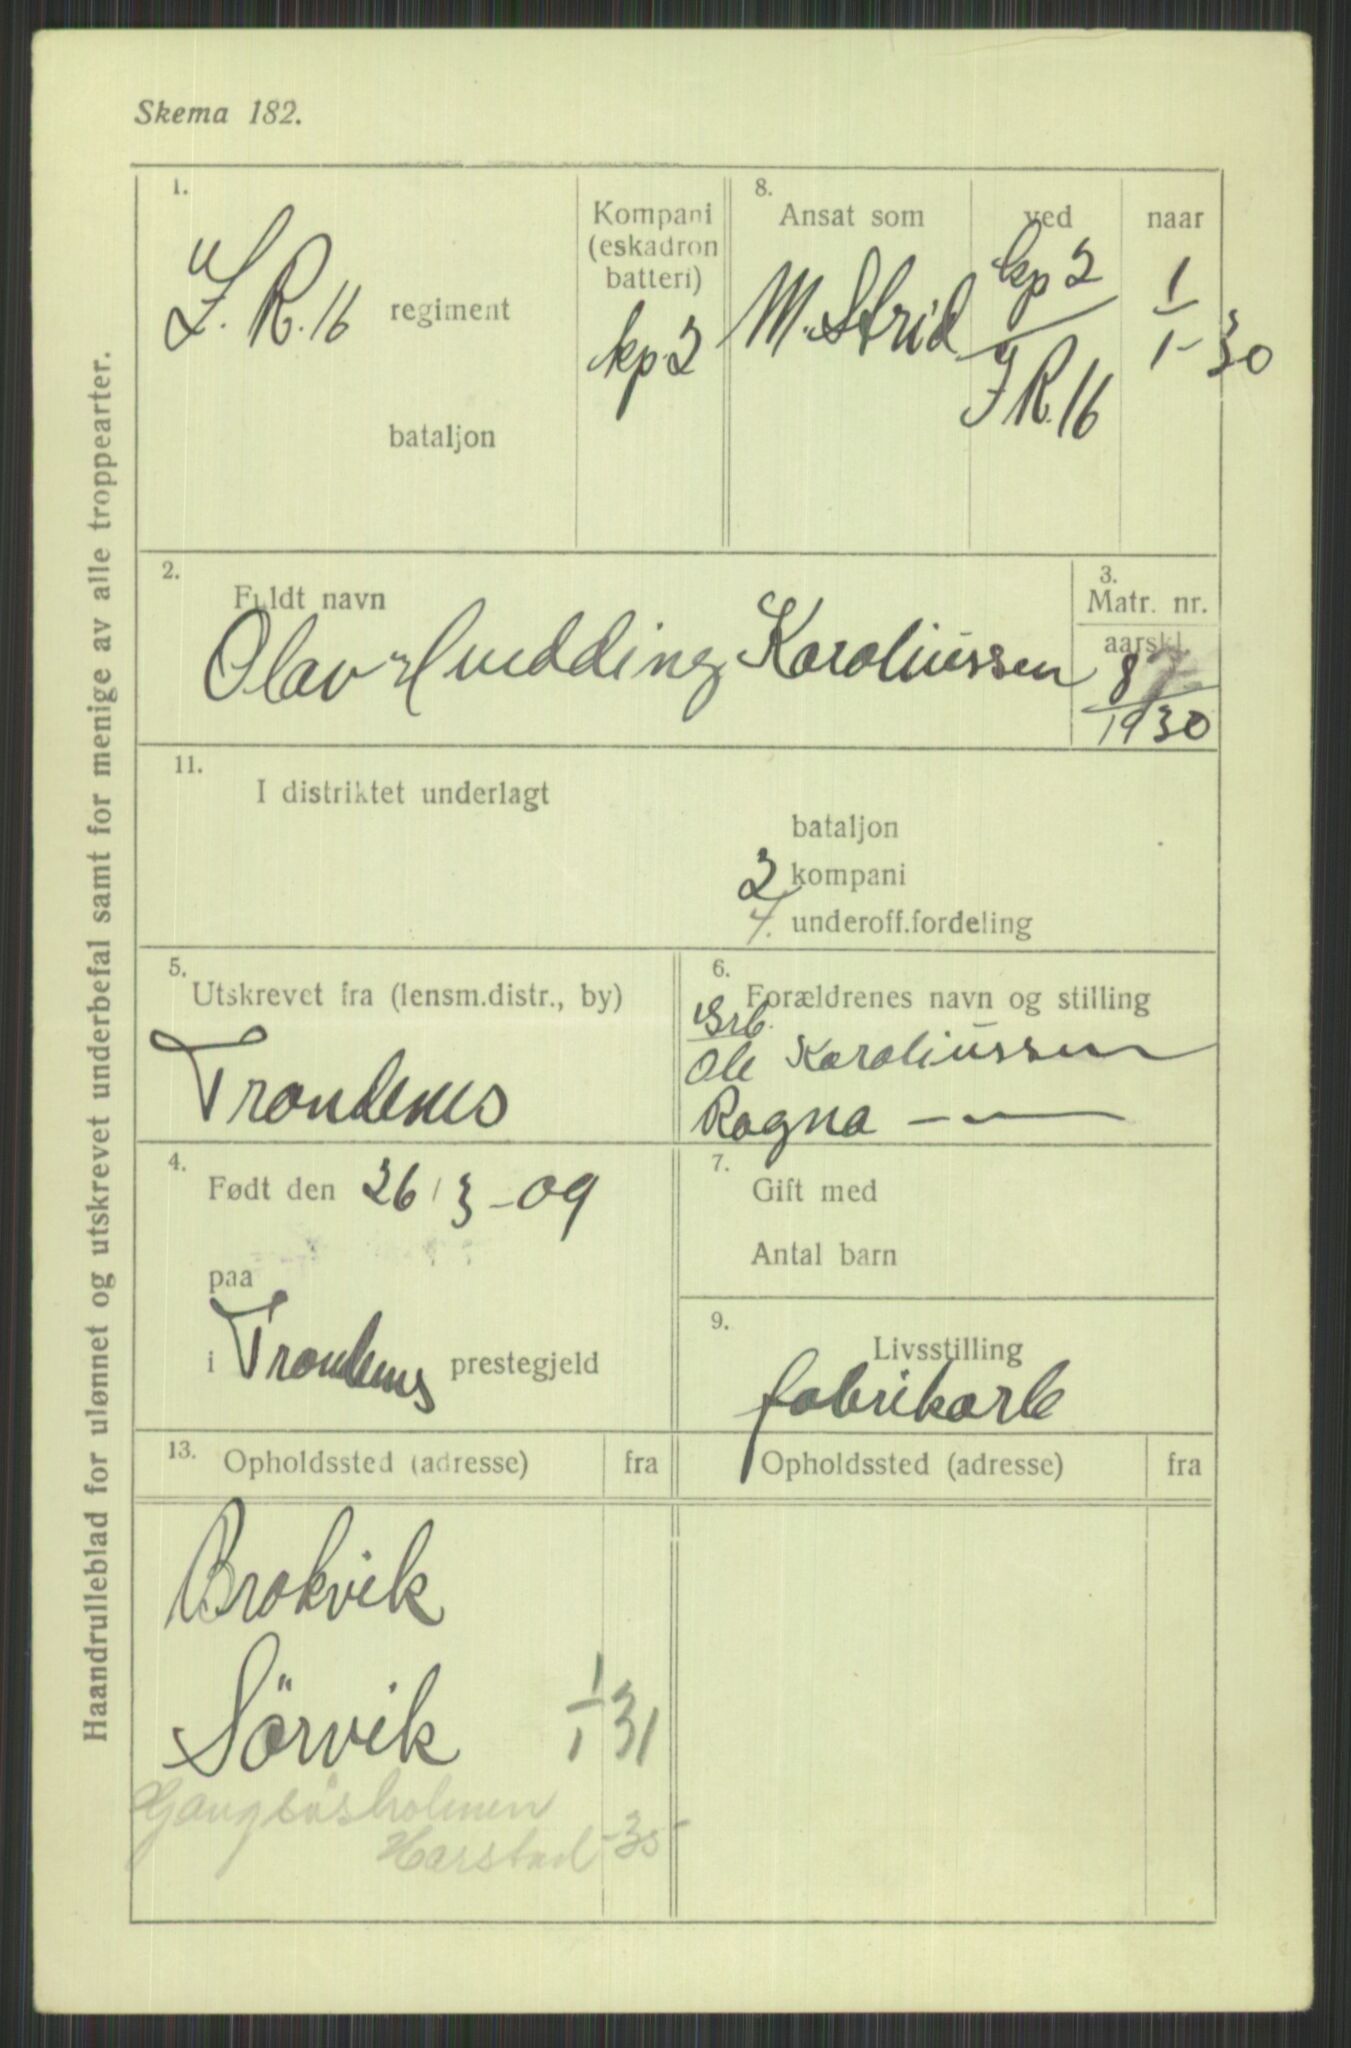 Skema 182.
Haandrulleblad for ulønnet og utskrevet underbefal samt for menige av alle troppearter.
1.
I. R. 16 regiment
bataljon
Kompani
(eskadron
batteri)
kp 2
8.
Ansat som
M. Strid
ved
kp 2
I R. 16
naar
1
1 - 30
2.
Fuldt navn
Olav Hvedding Karoliussen
3.
Matr. nr.
aarskl.
87
1930
11.
I distriktet underlagt
bataljon
2 kompani
4. underoff.fordeling
5.
Utskrevet fra (lensm.distr., by)
Trondenes
6.
Forældrenes navn og stilling
Grb.
Ole Karoliussen
Ragna — —
4.
Født den 26/3-09
paa
i Trondenes prestegjeld
7.
Gift med
Antal barn
9.
Livsstilling
fabrikarb
13.
Opholdssted (adresse) fra
Opholdssted (adresse) fra
Brokvik
Sörvik 1/1 31
Gangsåsholmen
Harstad -35